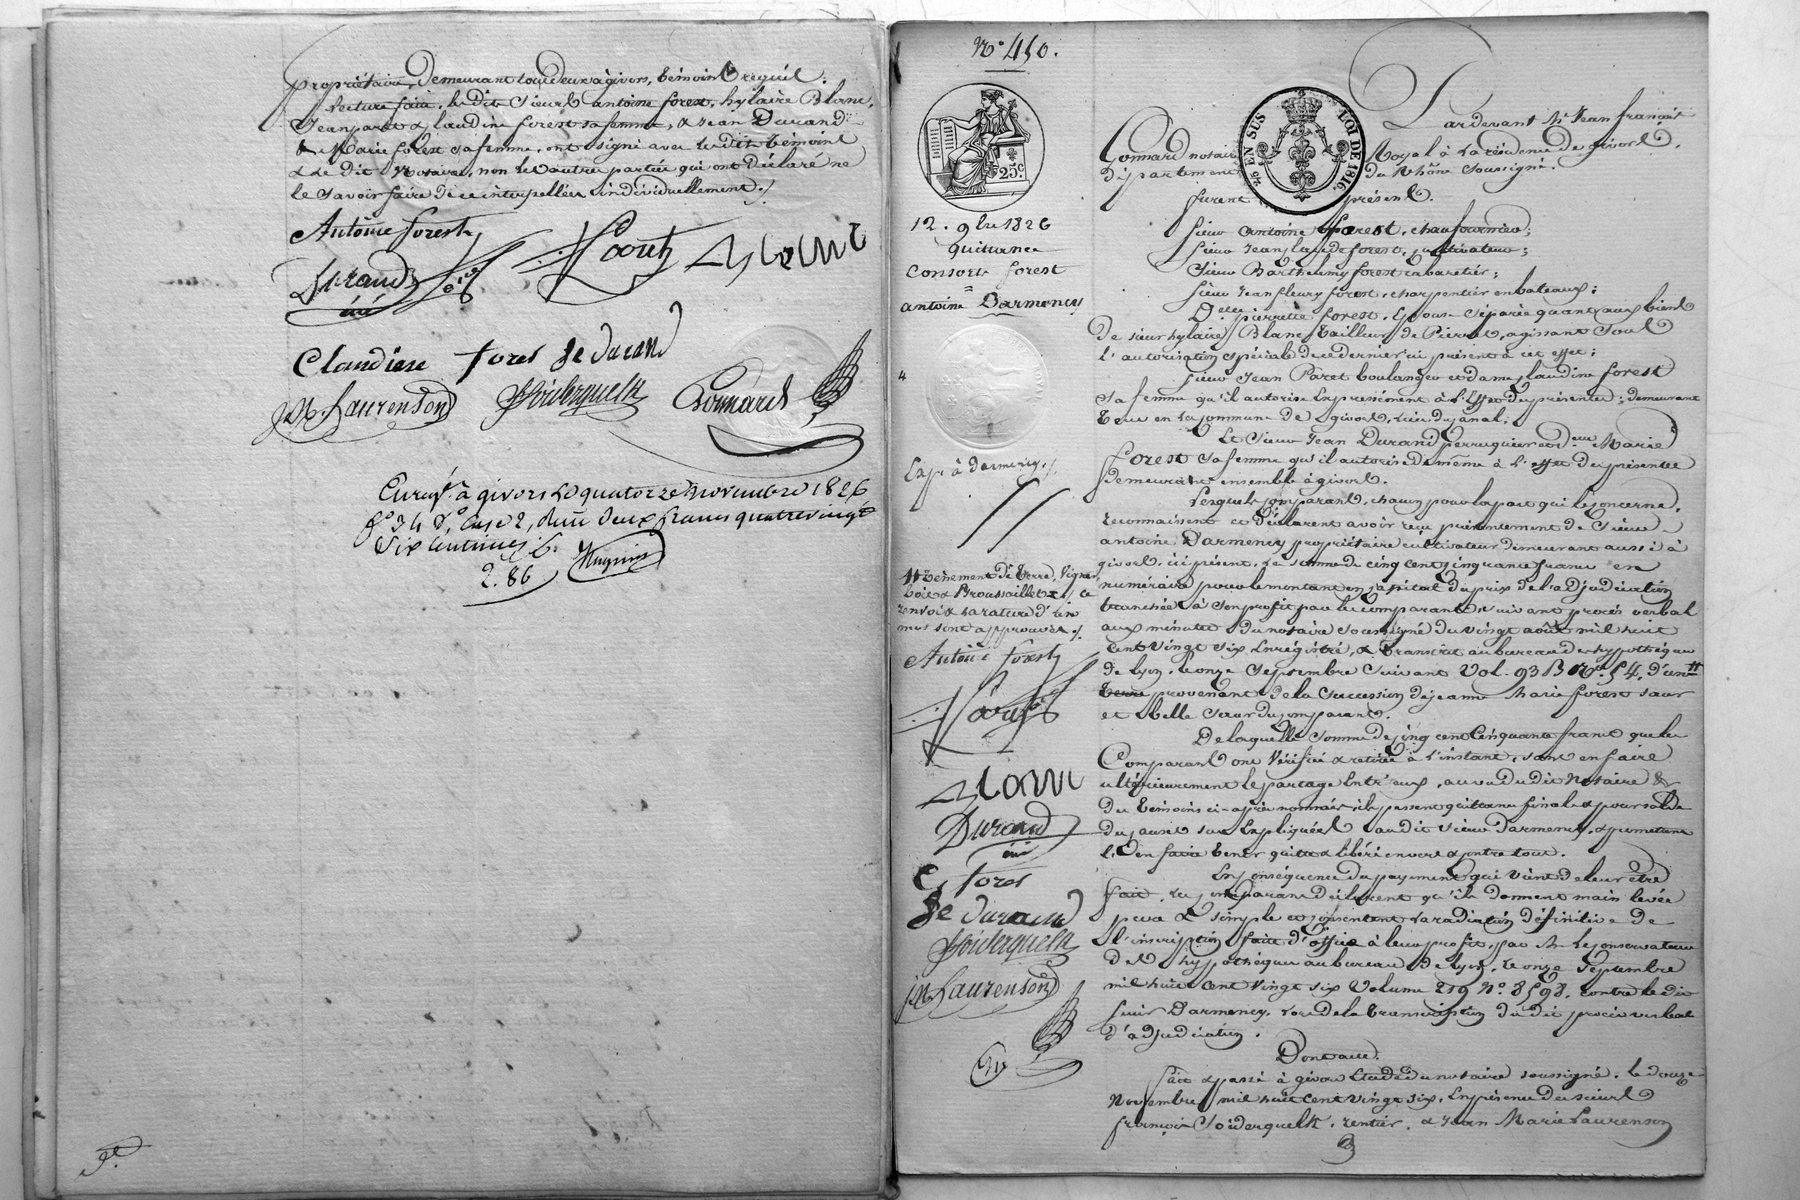 propriétaire, demeurant tous deux à givors, témoins requis.
Lecture faite, les dits Sieurs antoine forest, hylaire Blanc,
Jean paret & claudine forest sa femme, & Jean Durand
& Marie forest sa femme, ont signé avec les dits témoins
& le dit Notaire, non les autres parties qui ont déclaré ne
le savoir faire de ce interpellés individuellement ./.
Antoine forest
Paret
Blanc
Durand
Claudine forest fe durand
JM Laurenson
Soiderquelk
Connard
Enreg.t à givors le quatorze novembre 1826
f.o 34 v.o case 2, reçu deux francs quatre vingt
six centimes
2. 86
N.o 450.
25c
EN SUS
LOI DE 1816.
12. 9bre 1826
Quittance
Consorts forest
=
antoine Darmency
4
Exp. à Darmency ./.
// tènement de terre, vigne,
bois & Broussailles ce
renvoi & la rature d'un
mot sont approuvés ./.
Antoine forest
Paret
Blanc
Durand
C. forest
fe durand
Soiderquelk
JM Laurenson
Pardevant M.e Jean françois
Connard notaire Royal à la résidence de givors,
département du Rhône soussigné.
furent présens.
Sieur antoine forest, chaufournier;
Sieur Jean claude forest, cultivateur;
Sieur Barthelemy forest cabaretier;
Sieur Jean fleury forest, charpentier en bateaux;
D.elle pierrette forest, Epouse séparée quant aux biens
de sieur hylaire Blanc tailleur de Pierres, agissant sous
l'autorisation spéciale de ce dernier ici présent à cet effet;
Sieur Jean Paret boulanger et dame claudine forest
sa femme qu'il autorise expressément à l'effet des présentes; demeurant
tous en la commune de givors, lieu du canal;
Et Sieur Jean Durand perruquier et d.me Marie
forest sa femme qu'il autorise de même à l'effet des présentes
demeurant ensemble à givors.
Lesquels comparant, chacun pour la part qui le concerne,
reconnaissent et déclarent avoir reçu présentement de Sieur
antoine Darmency propriétaire cultivateur demeurant aussi à
givors, ici présent, la somme de cinq cent cinquante francs en
numéraire pour le montant en capital du prix de l'adjudication
tranchée à son profit par les comparants, suivant procès verbal
aux minutes du notaire soussigné du vingt août mil huit
cent vingt six enregistré, & transcrit au bureau des hypothèques
de Lyon, le onze Septembre suivant Vol. 93 B N.o 54, d'un //
terre provenant de la succession de jeanne Marie forest sœur
et belle sœur des comparant.
De laquelle somme de cinq cent cinquante francs que les
Comparans ont vérifiée & retirée à l'instant, sauf en faire
ultérieurement le partage entr'eux, au vu du dit Notaire &
des témoins ci-après nommés, ils passent quittance finale & pour solde
des causes sus expliquées au dit sieur Darmency, & promettent
l'en faire tenir quitte & libéré envers & contre tous.
En conséquence du payement qui vient de leur être
fait, les comparans déclarent qu'ils donnent main levée
pure & simple et consentent la radiation définitive de
l'inscription faite d'office à leur profit, par M. le conservateur
des hypothèques au bureau de Lyon, le onze Septembre
mil huit cent vingt six Volume 219 N.o 8598, contre le dit
Sieur Darmency, lors de la transcription du dit procès verbal
d'adjudication.
Dont acte.
fait & passé à givors Etude du notaire soussigné, le douze
Novembre mil huit cent vingt six, En présence des sieurs
françois Soiderquelk, rentier, & Jean Marie Laurenson